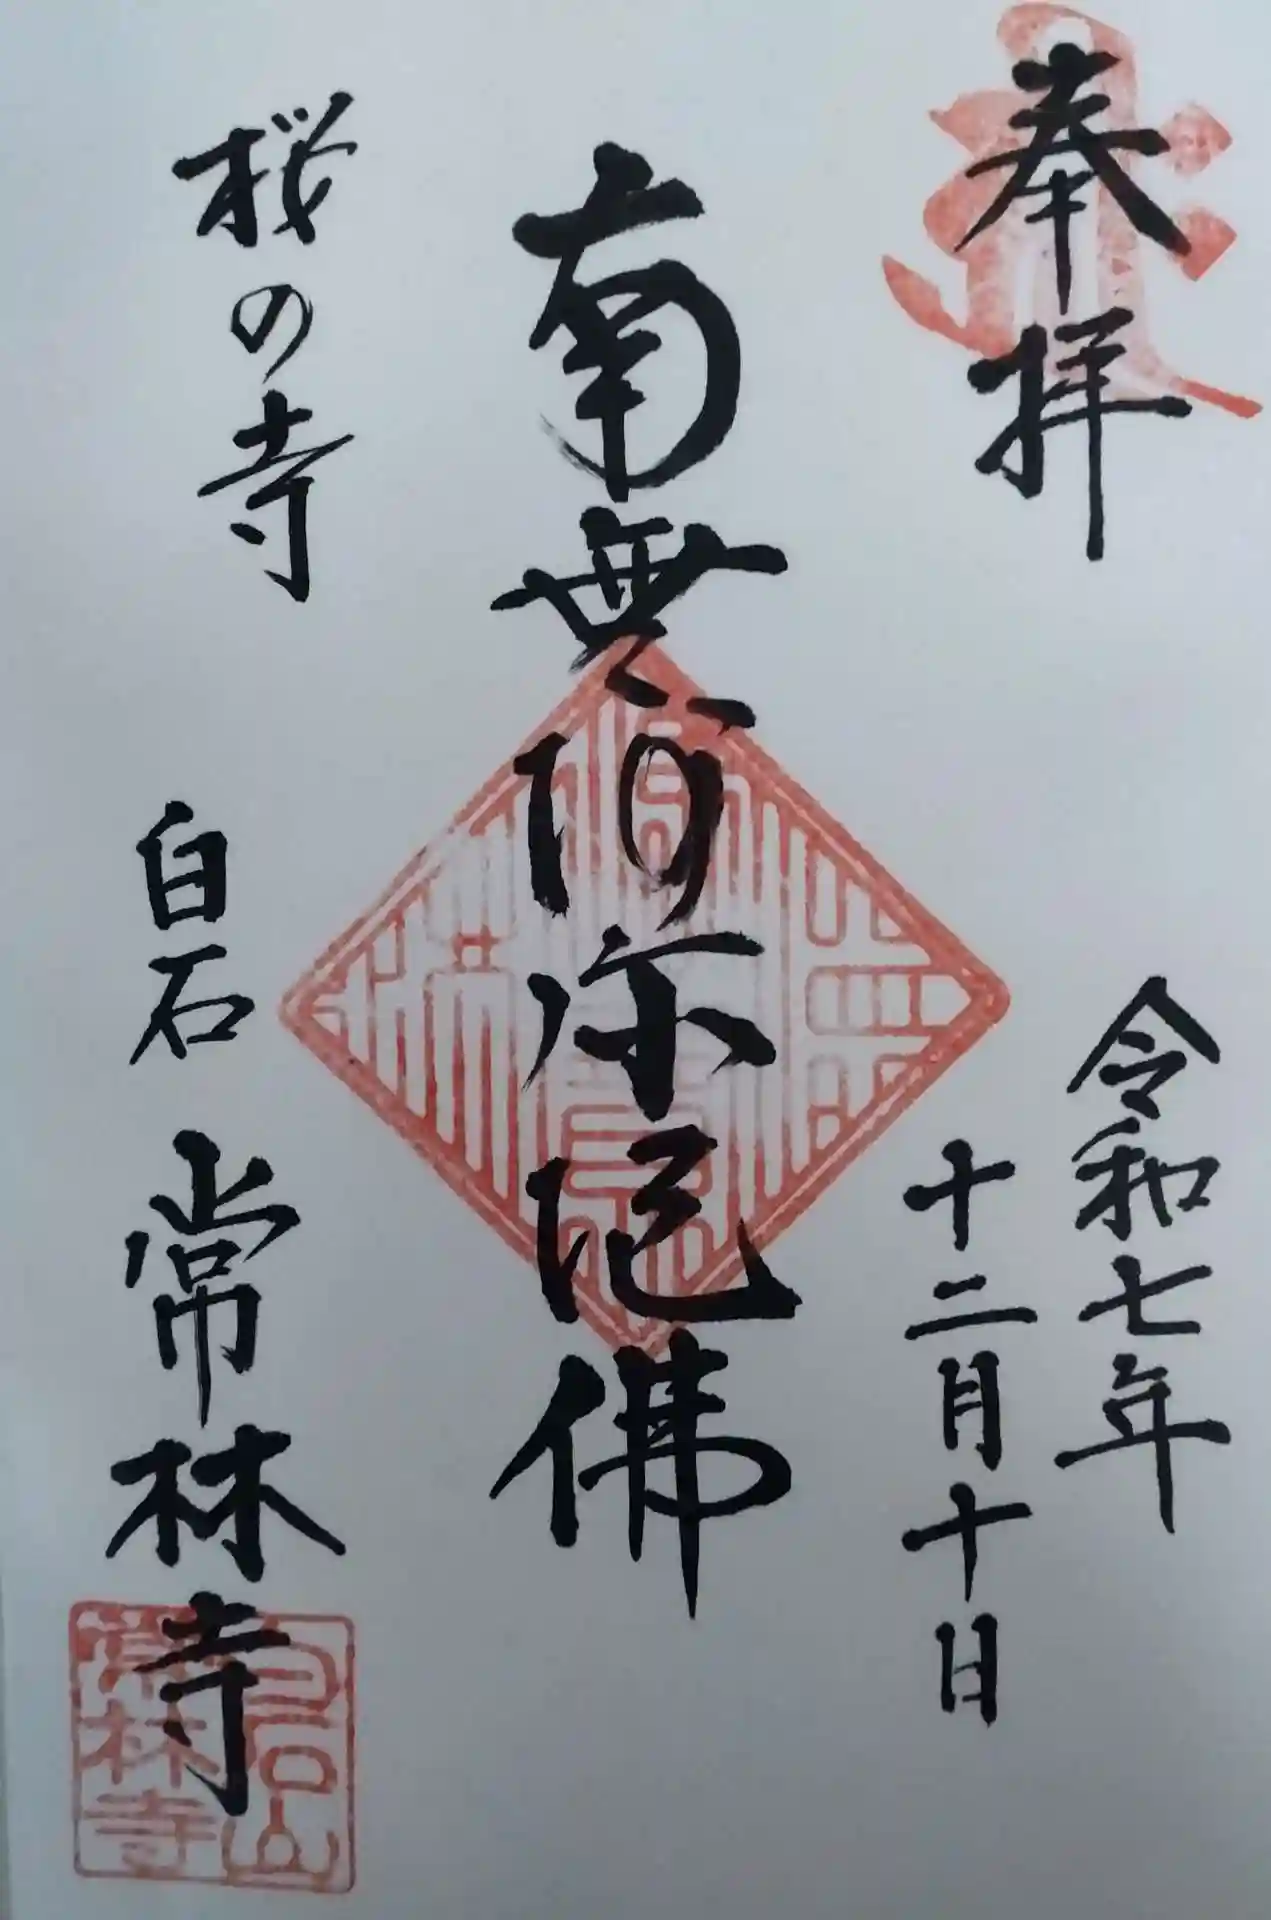 奉拝
令和七年
十二月十日
南無阿弥陀佛
桜の寺
白石 常林寺
白石山
常林寺